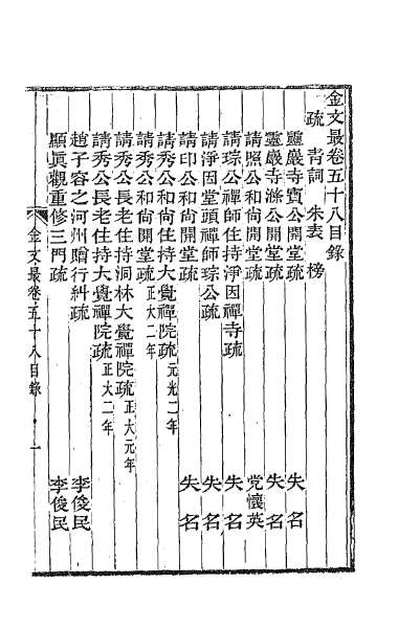 金文最卷五十八目錄
疏 青詞 朱表 榜
靈巖寺寶公開堂疏 失名
靈巖寺滌公開堂疏 失名
請照公和尚開堂疏 党懷英
請琮公禪師住持淨因禪寺疏 失名
請淨因堂頭禪師琮公疏 失名
請印公和尚開堂疏 失名
請秀公和尚住持大覺禪院疏 元光二年
請秀公和尚開堂疏 正大二年
請秀公長老住持洞林大覺禪院疏 正大元年
請秀公長老住持大覺禪院疏 正大二年
趙子容之河州贈行糾疏 李俊民
顯眞觀重修三門疏 李俊民
金文最卷五十八目錄 一